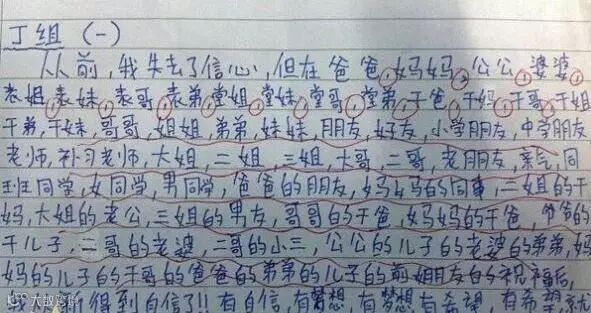 丁组 (一)
从前,我失去了信心,但在爸爸,妈妈,公公,婆婆,
表姐,表妹,表哥,表弟,堂姐,堂妹,堂哥,堂弟,干爸,干妈,干哥,干姐
干弟,干妹,哥哥,姐姐,弟弟,妹妹,朋友,好友,小学朋友,中学朋友
老师,补习老师,大姐,二姐,三姐,大哥,二哥,老朋友,亲戚,同
班同学,女同学,男同学,爸爸的朋友,妈妈的同事,二姐的干
妈,大姐的老公,三姐的男友,哥哥的干爸,妈妈的干爸,爷爷的
干儿子,二哥的老婆,二哥的小三,公公的儿子的老婆的弟弟,妈
妈的儿子的干哥的爸爸的弟弟的儿子的前女朋友的祝福后,
我 得到自信了!!有自信,有梦想,有梦想,有希望,有希望,就
大数跨境